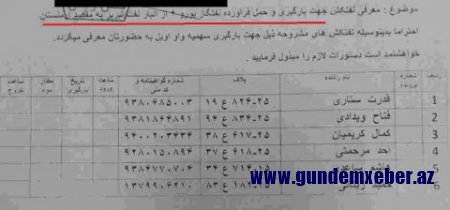 موضوع : معرفی نفتکش جهت بارگیری و حمل فرآورده نفتگاز یورو ۴ از انبار نفت تبریز به مقصد ارمنستان
احتراما بدینوسیله نفتکش های مشروحه ذیل جهت بارگیری سهمیه واو اویل به حضورتان معرفی میگردد.
خواهشمند است دستورات لازم را مبذول فرمایید .
ردیف شماره پرونده نام راننده پلاک شماره گواهینامه و کد ملی ساعت ورود تاریخ بارگیری مقدار مواد ساعت خروج
1 قدرت ستاری ۲۵-۸۲۴ ع ۱۹ ۹۳۸۰۶۸۵۰۰۳
2 فتاح ویدادی ۲۵-۶۳۴ ع ۹۴ ۹۳۸۱۸۶۴۸۹۱
3 کمال کریمیان ۲۵-۶۱۷ ع ۳۸ ۹۴۰۰۲۰۳۴۳۴
4 احد مرحمتی ۲۵-۶۱۸ ع ۳۷ ۹۲۸۰۱۵۰۸۹۴
5 هاشم ساعدی ۲۵-۷۱۴ ع ۳۴ ۹۳۸۴۷۷۰۷۰۴
6 حمید زینالی ۲۵-۱۸۲ ع ۸۳ ۱۳۷۹۹۰۶۲۱۰
www.gundemxeber.az